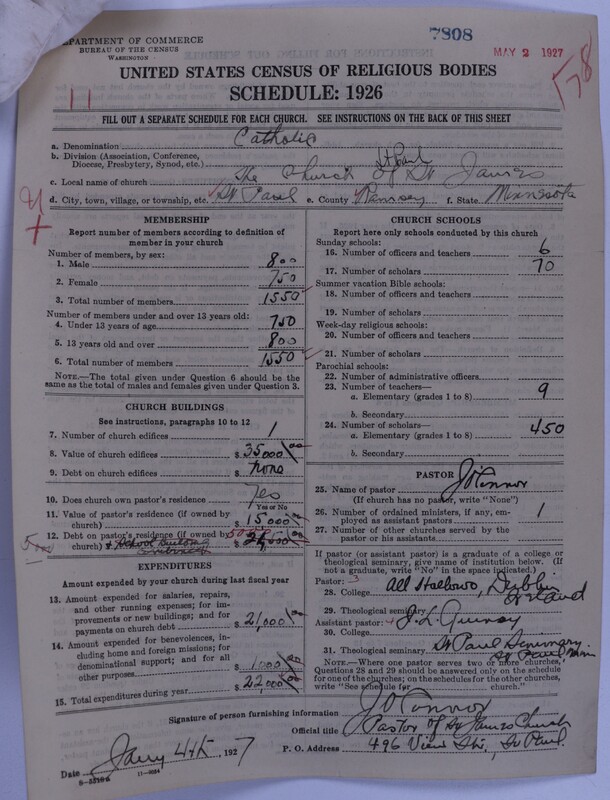 DEPARTMENT OF COMMERCE
BUREAU OF THE CENSUS
WASHINGTON
7808
MAY 2 1927
UNITED STATES CENSUS OF RELIGIOUS BODIES
SCHEDULE: 1926
FILL OUT A SEPARATE SCHEDULE FOR EACH CHURCH. SEE INSTRUCTIONS ON THE BACK OF THIS SHEET
a. Denomination Catholic
b. Division (Association, Conference, Diocese, Presbytery, Synod, etc.) St Paul
c. Local name of church The Church of St James
d. City, town, village, or township, etc. St Paul e. County Ramsey f. State Minnesota
MEMBERSHIP
Report number of members according to definition of member in your church
Number of members, by sex:
1. Male 800
2. Female 750
3. Total number of members 1550
Number of members under and over 13 years old:
4. Under 13 years of age 750
5. 13 years old and over 800
6. Total number of members 1550
NOTE.—The total given under Question 6 should be the same as the total of males and females given under Question 3.
CHURCH BUILDINGS
See instructions, paragraphs 10 to 12
7. Number of church edifices 1
8. Value of church edifices $ 35000
9. Debt on church edifices $ none
10. Does church own pastor's residence Yes
Yes or No
11. Value of pastor's residence (if owned by church) $ 15000
12. Debt on pastor's residence (if owned by church) $
EXPENDITURES
Amount expended by your church during last fiscal year
13. Amount expended for salaries, repairs, and other running expenses; for improvements or new buildings; and for payments on church debt $ 21,000
14. Amount expended for benevolences, including home and foreign missions; for denominational support; and for all other purposes $ 1000
15. Total expenditures during year $ 22,000
CHURCH SCHOOLS
Report here only schools conducted by this church
Sunday schools:
16. Number of officers and teachers 6
17. Number of scholars 70
Summer vacation Bible schools:
18. Number of officers and teachers
19. Number of scholars
Week-day religious schools:
20. Number of officers and teachers
21. Number of scholars
Parochial schools:
22. Number of administrative officers
23. Number of teachers—
a. Elementary (grades 1 to 8) 9
b. Secondary
24. Number of scholars—
a. Elementary (grades 1 to 8) 450
b. Secondary
PASTOR
25. Name of pastor J O'Connor
(If church has no pastor, write "None")
26. Number of ordained ministers, if any, employed as assistant pastors 1
27. Number of other churches served by the pastor or his assistants
If pastor (or assistant pastor) is a graduate of a college or theological seminary, give name of institution below. (If not a graduate, write "No" in the space indicated.)
Pastor:
28. College All Hallows, Dublin Ireland
29. Theological seminary
Assistant pastor:
30. College
31. Theological seminary St Paul Seminary St Paul Minn
NOTE.—Where one pastor serves two or more churches, Questions 28 and 29 should be answered only on the schedule for one of the churches; on the schedules for the other churches, write "See schedule for church."
Signature of person furnishing information J O'Connor
Official title Pastor of St James Church
P. O. Address 496 View St., St Paul.
Date Jany 4th 1927